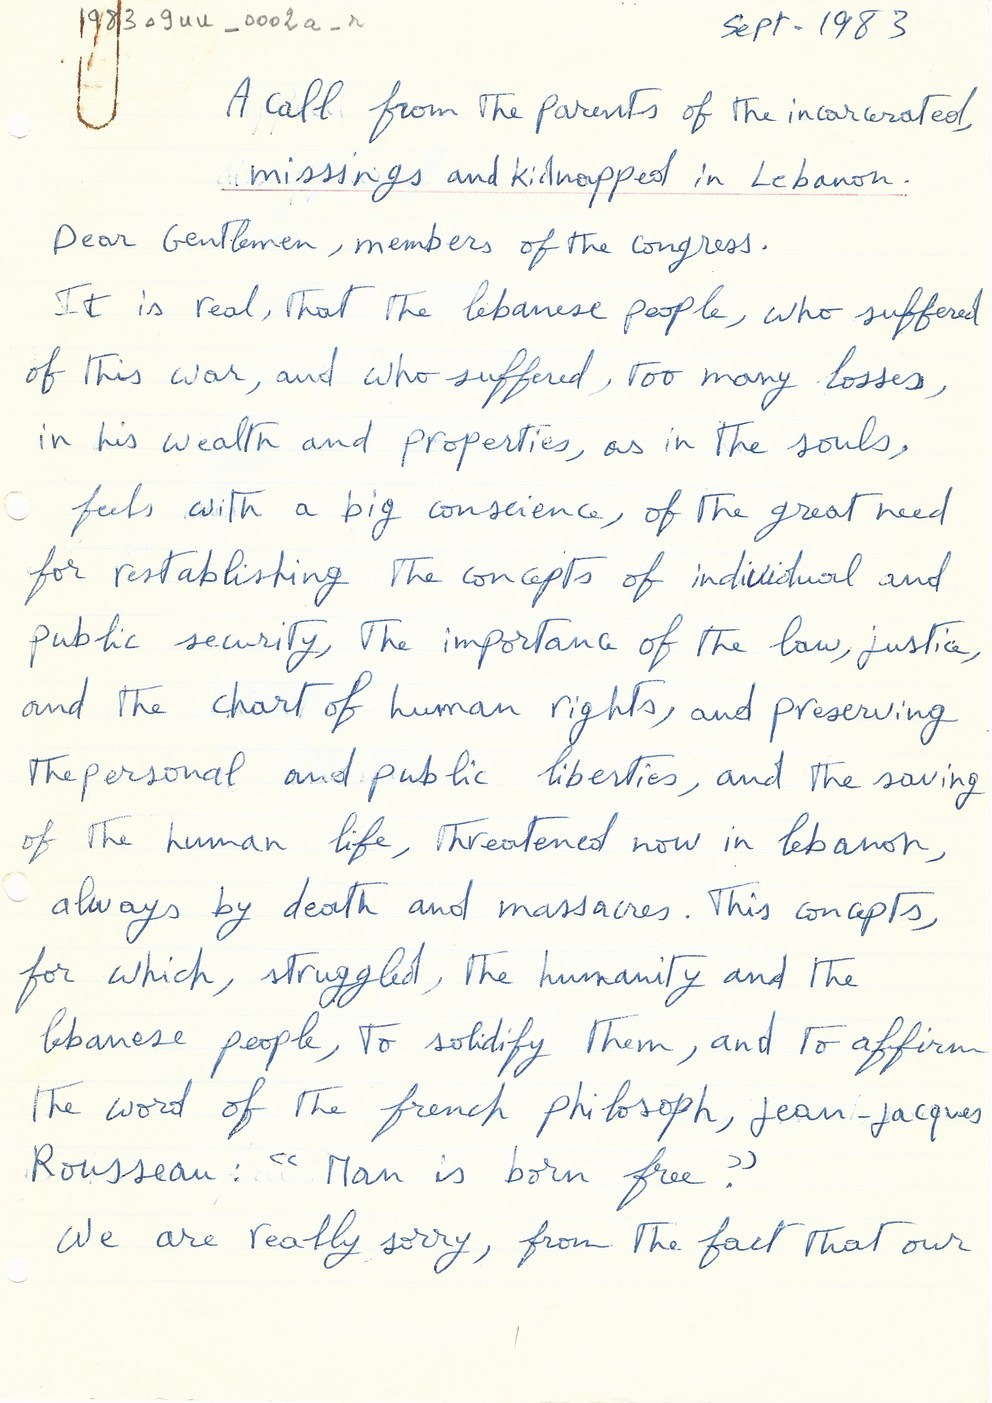 198309uu_0002a_r
Sept. 1983
A call from the parents of the incarcerated,
missings and kidnapped in Lebanon.
Dear Gentlemen, members of the congress.
It is real, that the lebanese people, who suffered
of this war, and who suffered, too many losses,
in his wealth and properties, as in the souls,
feels with a big conscience, of the great need
for restablishing the concepts of individual and
public security, the importance of the law, justice,
and the chart of human rights, and preserving
the personal and public liberties, and the saving
of the human life, threatened now in lebanon,
always by death and massacres. This concepts,
for which, struggled, the humanity and the
lebanese people, to solidify them, and to affirm
the word of the french philosoph, jean-jacques
Rousseau: "Man is born free."
We are really sorry, from the fact that our
1